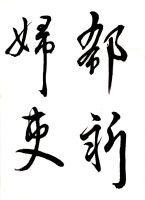 郗新
婦更